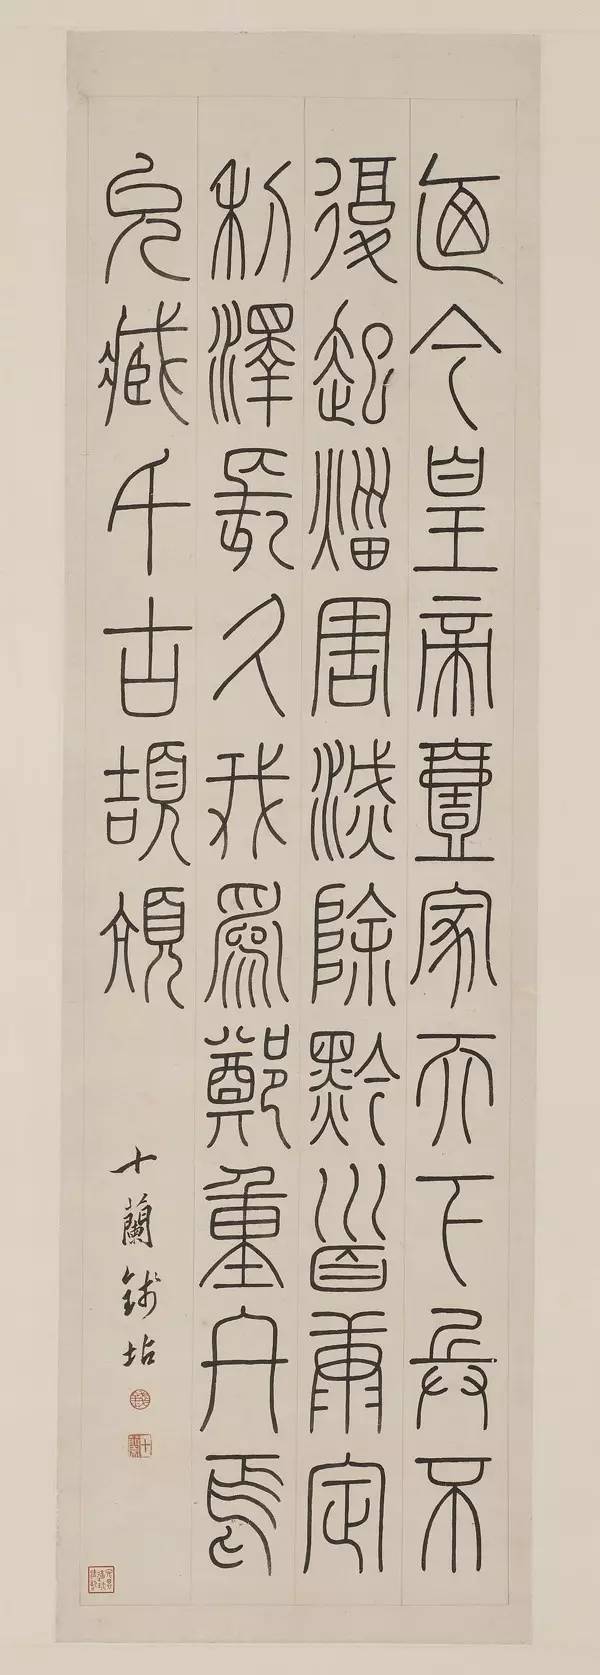 迺今皇帝壹家天下兵不
復起災害滅除黔首康定
利澤長久我爲鄭重
千古頡頏
十蘭錢坫